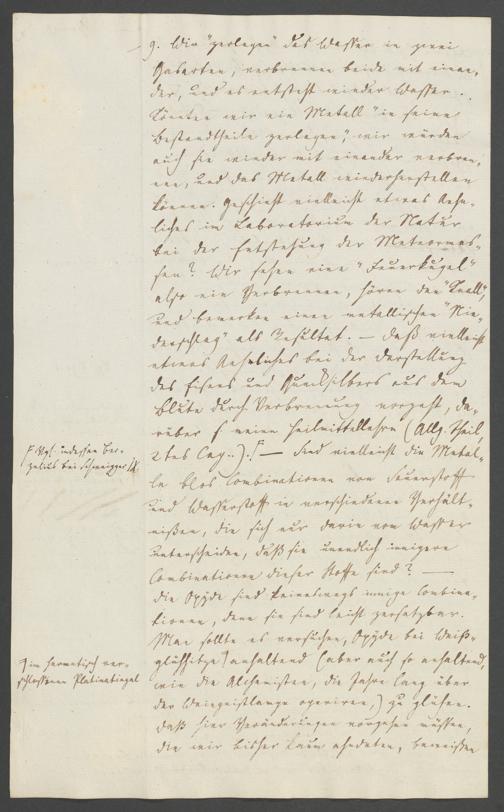 9. Wir "zerlegen" das Wasser in zwei
Gasarten, verbrennen beide mit einan,
der, und es entsteht wieder Wasser.
Könnten wir ein Metall "in seine
Bestandtheile zerlegen", wir würden
auch sie wieder mit einander verbren,
nen, und das Metall wiederherstellen
können. Geschieht vielleicht etwas Aehn,
liches im Laboratorium der Natur
bei der Entstehung der Meteormas,
sen? Wir sehen eine "Feuerkugel"
also ein Verbrennen, hören den "Knall",
und bemerken einen metallischen "Nie,
derschlag" als Resultat. — Daß vielleicht
etwas Aehnliches bei der Darstellung
des Eisens und Quecksilbers aus dem
Blute durch Verbrennung vorgeht, da,
rüber s. meine Heilmittellehre (Allg. Theil,
2tes Cap..). — Sind vielleicht die Metal,
le blos Combinationen von Feuerstoff
und Wasserstoff in verschiedenen Verhält,
nißen, die sich nur darin vom Wasser
unterscheiden, daß sie unendlich innigere
Combinationen dieser Stoffe sind? —
Die Oxyde sind keineswegs innige Combina,
tionen, denn sie sind leicht zersetzbar.
Man sollte es versuchen, Oxyde bei Weiß,
glühhitze anhaltend (aber auch so anhaltend,
wie die Alchemisten, die Jahre lang über
der Weingeistlampe operiren,) zu glühen.
Daß hier Veränderungen vorgehen müssen,
die wir bisher kaum ahndeten, beweisen
Vgl. indessen Ber,
zelius bei Schweigger
im hermetisch ver,
schlossenen Platinatiegel